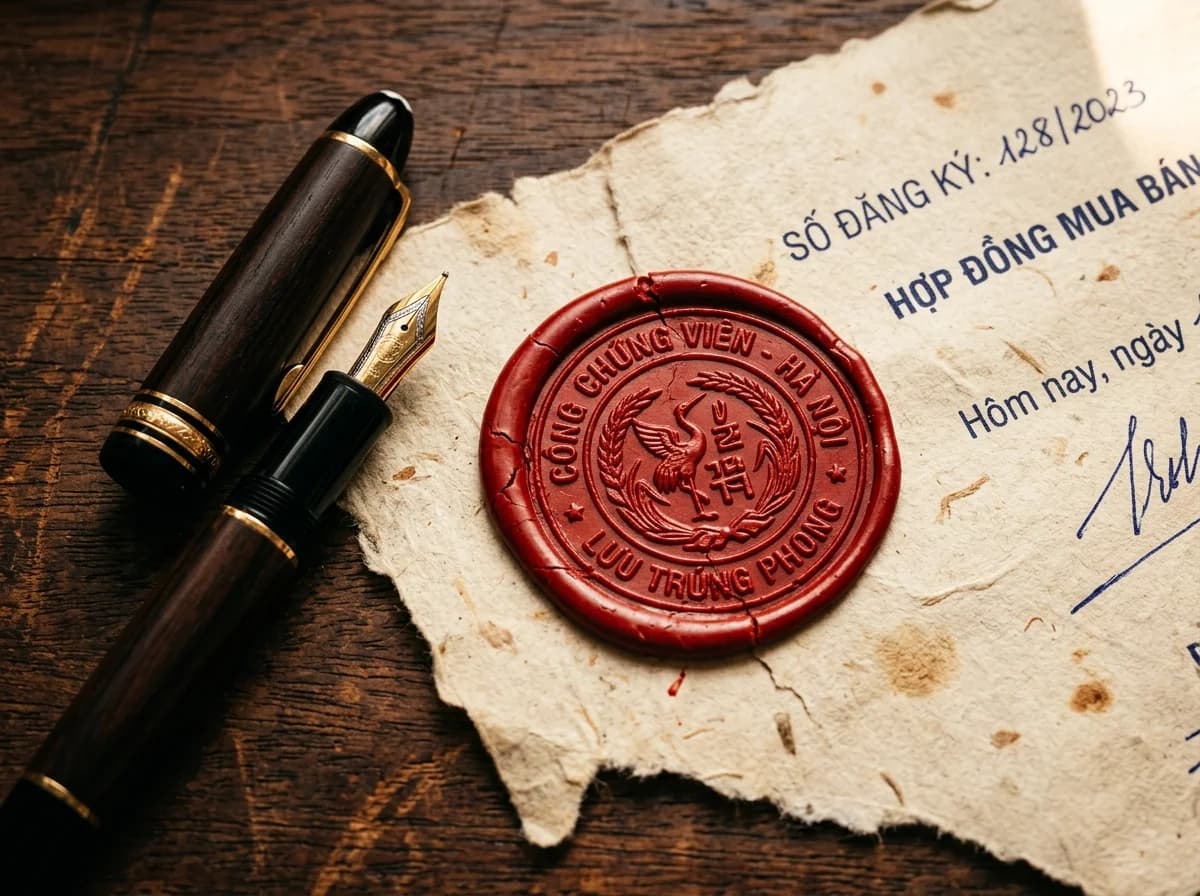 SỐ ĐĂNG KÝ: 128/2023
HỢP ĐỒNG MUA BÁN
Hôm nay, ngày
CÔNG CHỨNG VIÊN - HÀ NỘI
LƯU TRÙNG PHONG